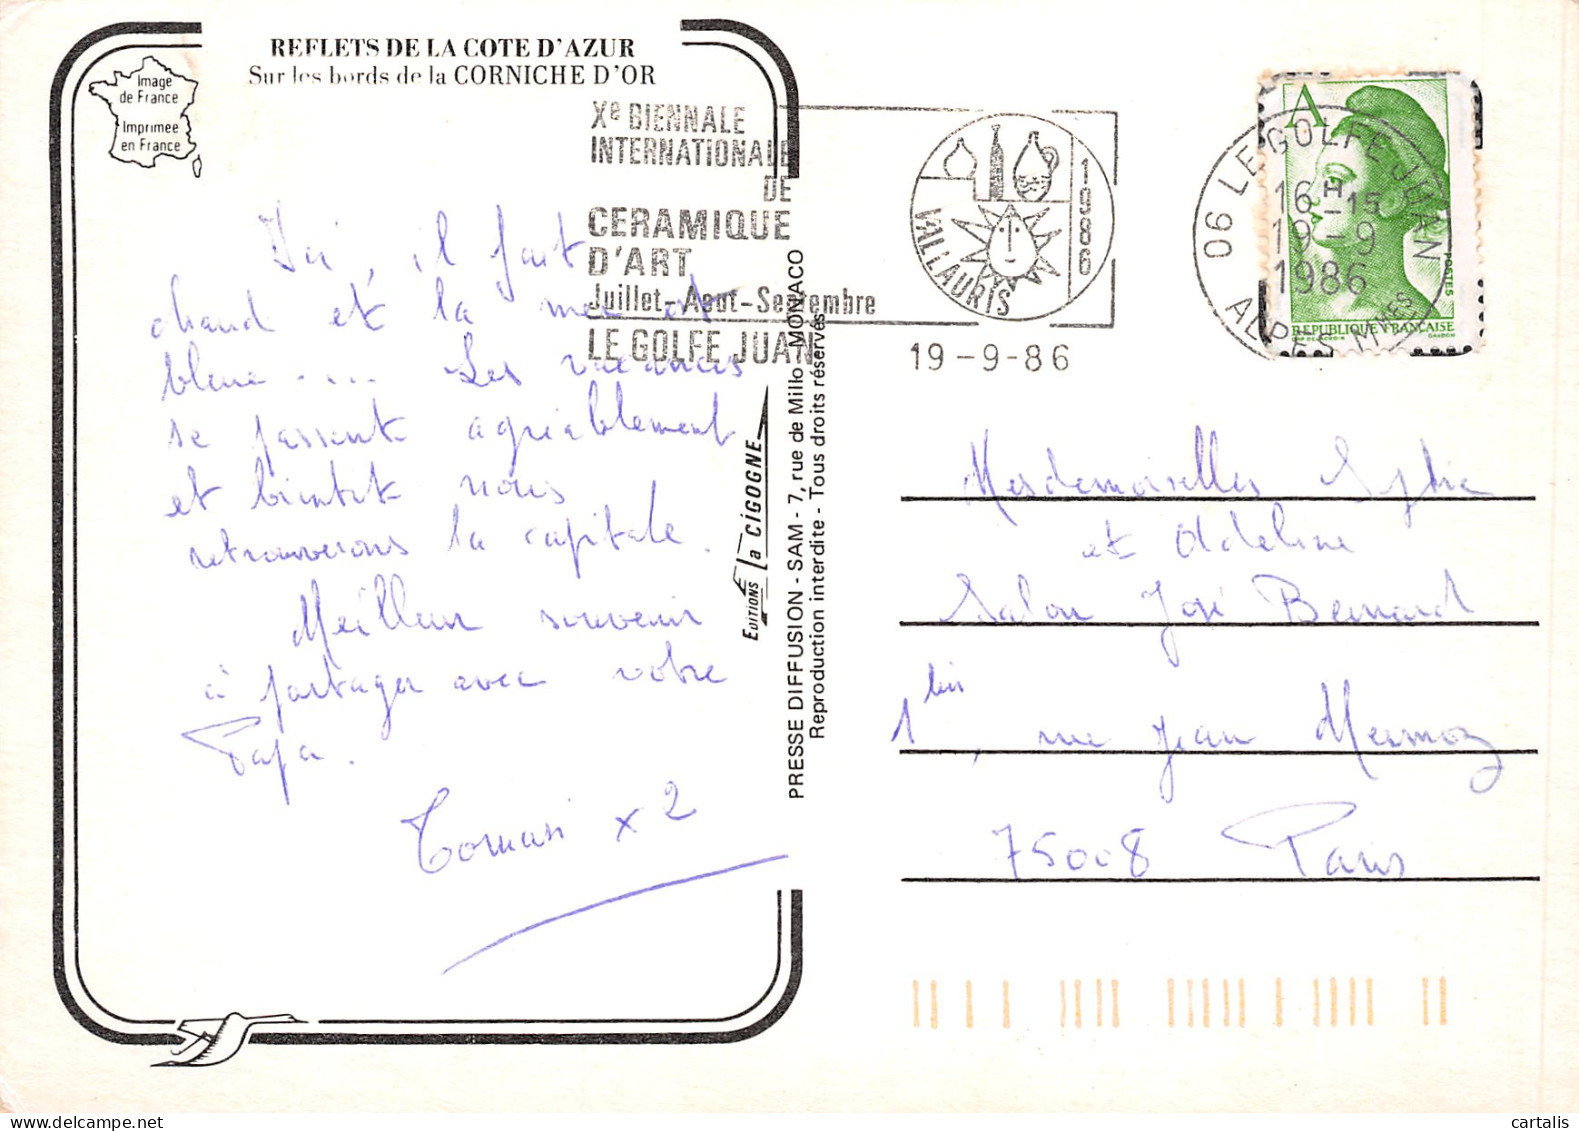 REFLETS DE LA COTE D'AZUR
Sur les bords de la CORNICHE D'OR
Image
de France
Imprimée
en France
Xe BIENNALE
INTERNATIONALE
DE
CERAMIQUE
D'ART
Juillet-Aout-Septembre
LE GOLFE JUAN
VALLAURIS
1986
19-9-86
06 LE GOLFE JUAN
16H-15
19-9
1986
ALPES MMES
A
POSTES
REPUBLIQUE FRANÇAISE
Ici, il fait
chaud et la mer est
bleue .... Les vacances
se passent agréablement
et bientôt nous
retrouverons la capitale.
Meilleur souvenir
à partager avec votre
Papa.
Tomasi x 2
EDITIONS La CIGOGNE
PRESSE DIFFUSION - SAM - 7, rue de Millo MONACO
Reproduction interdite - Tous droits réservés
Mesdemoiselles Sylvie
et Adeline
Salon José Bernard
1 bis, rue Jean Mermoz
75008 Paris
cartalis